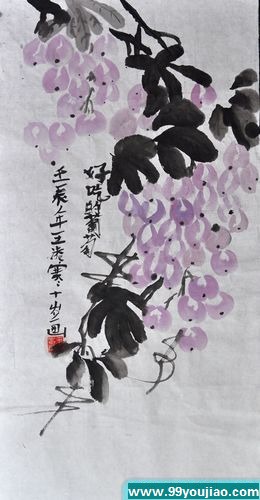 好吃的葡萄
壬辰年王凌霄十岁画
www.99youjiao.com